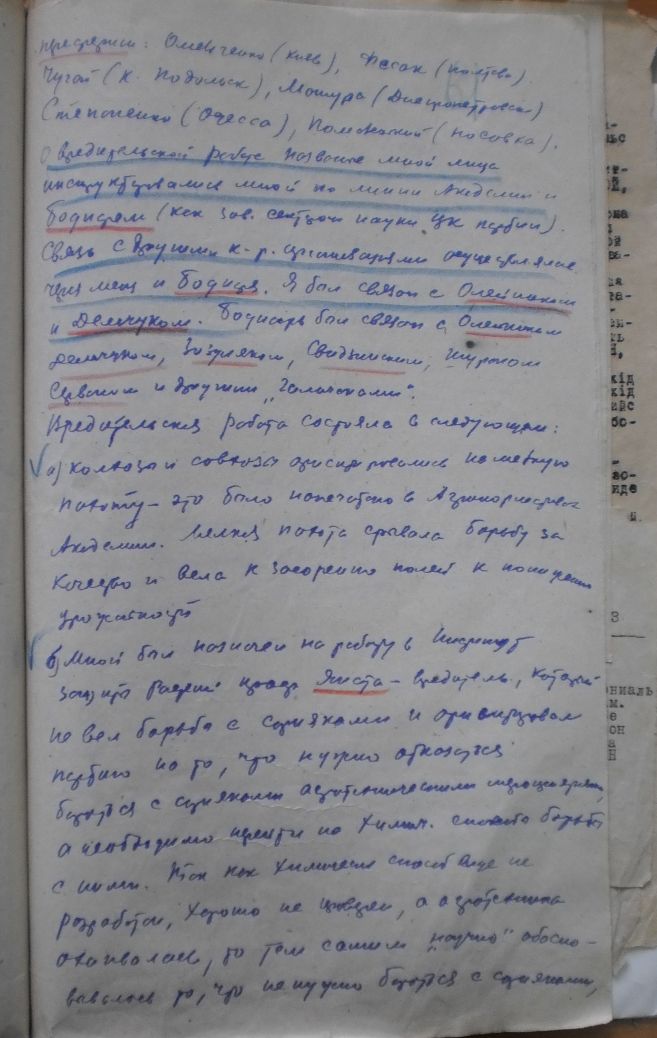 Омельченко (Киев), (Полтава).
Чугай (К. Подольск), Мошура (Днепропетровск)
Степаненко (Одесса), (Носовка).
О вредительской работе названые мной лица
инструктировались мной по линии Академии и
Бодисрем (как зав. сектором науки ЦК партии).
Связь с другими к-р. организациями осуществлялась
через меня и Бодисра. Я был связан с Олейником
и Демчуком. был связан с Олейником
Демчуком, Зозуляком, Свидзинским,
и другими „Галичанами".
Вредительская работа состояла в следующем:
а) колхозы и совхозы ориентировались на мелкую
пахоту – это было напечатано в
Академии. Мелкая пахота срывала борьбу за
качество и вела к засорению полей к понижению
урожайности
б) Мной был назначен на работу в Институт
защиты – вредитель, который
не вел борьбы с сорняками и ориентировал
партию на то, что нужно отказаться
бороться с сорняками агротехническими мероприятиями,
а необходимо перейти на химич. способ борьбы
с ними. Так как химический способ еще не
разработан, хорошо не, а агротехника
охаивалась, то тем самым „научно" обосно-
вывалось то, что не нужно бороться с сорняками,
кід
кід
бо-
3
ониаль
ам.
е
он
а
н